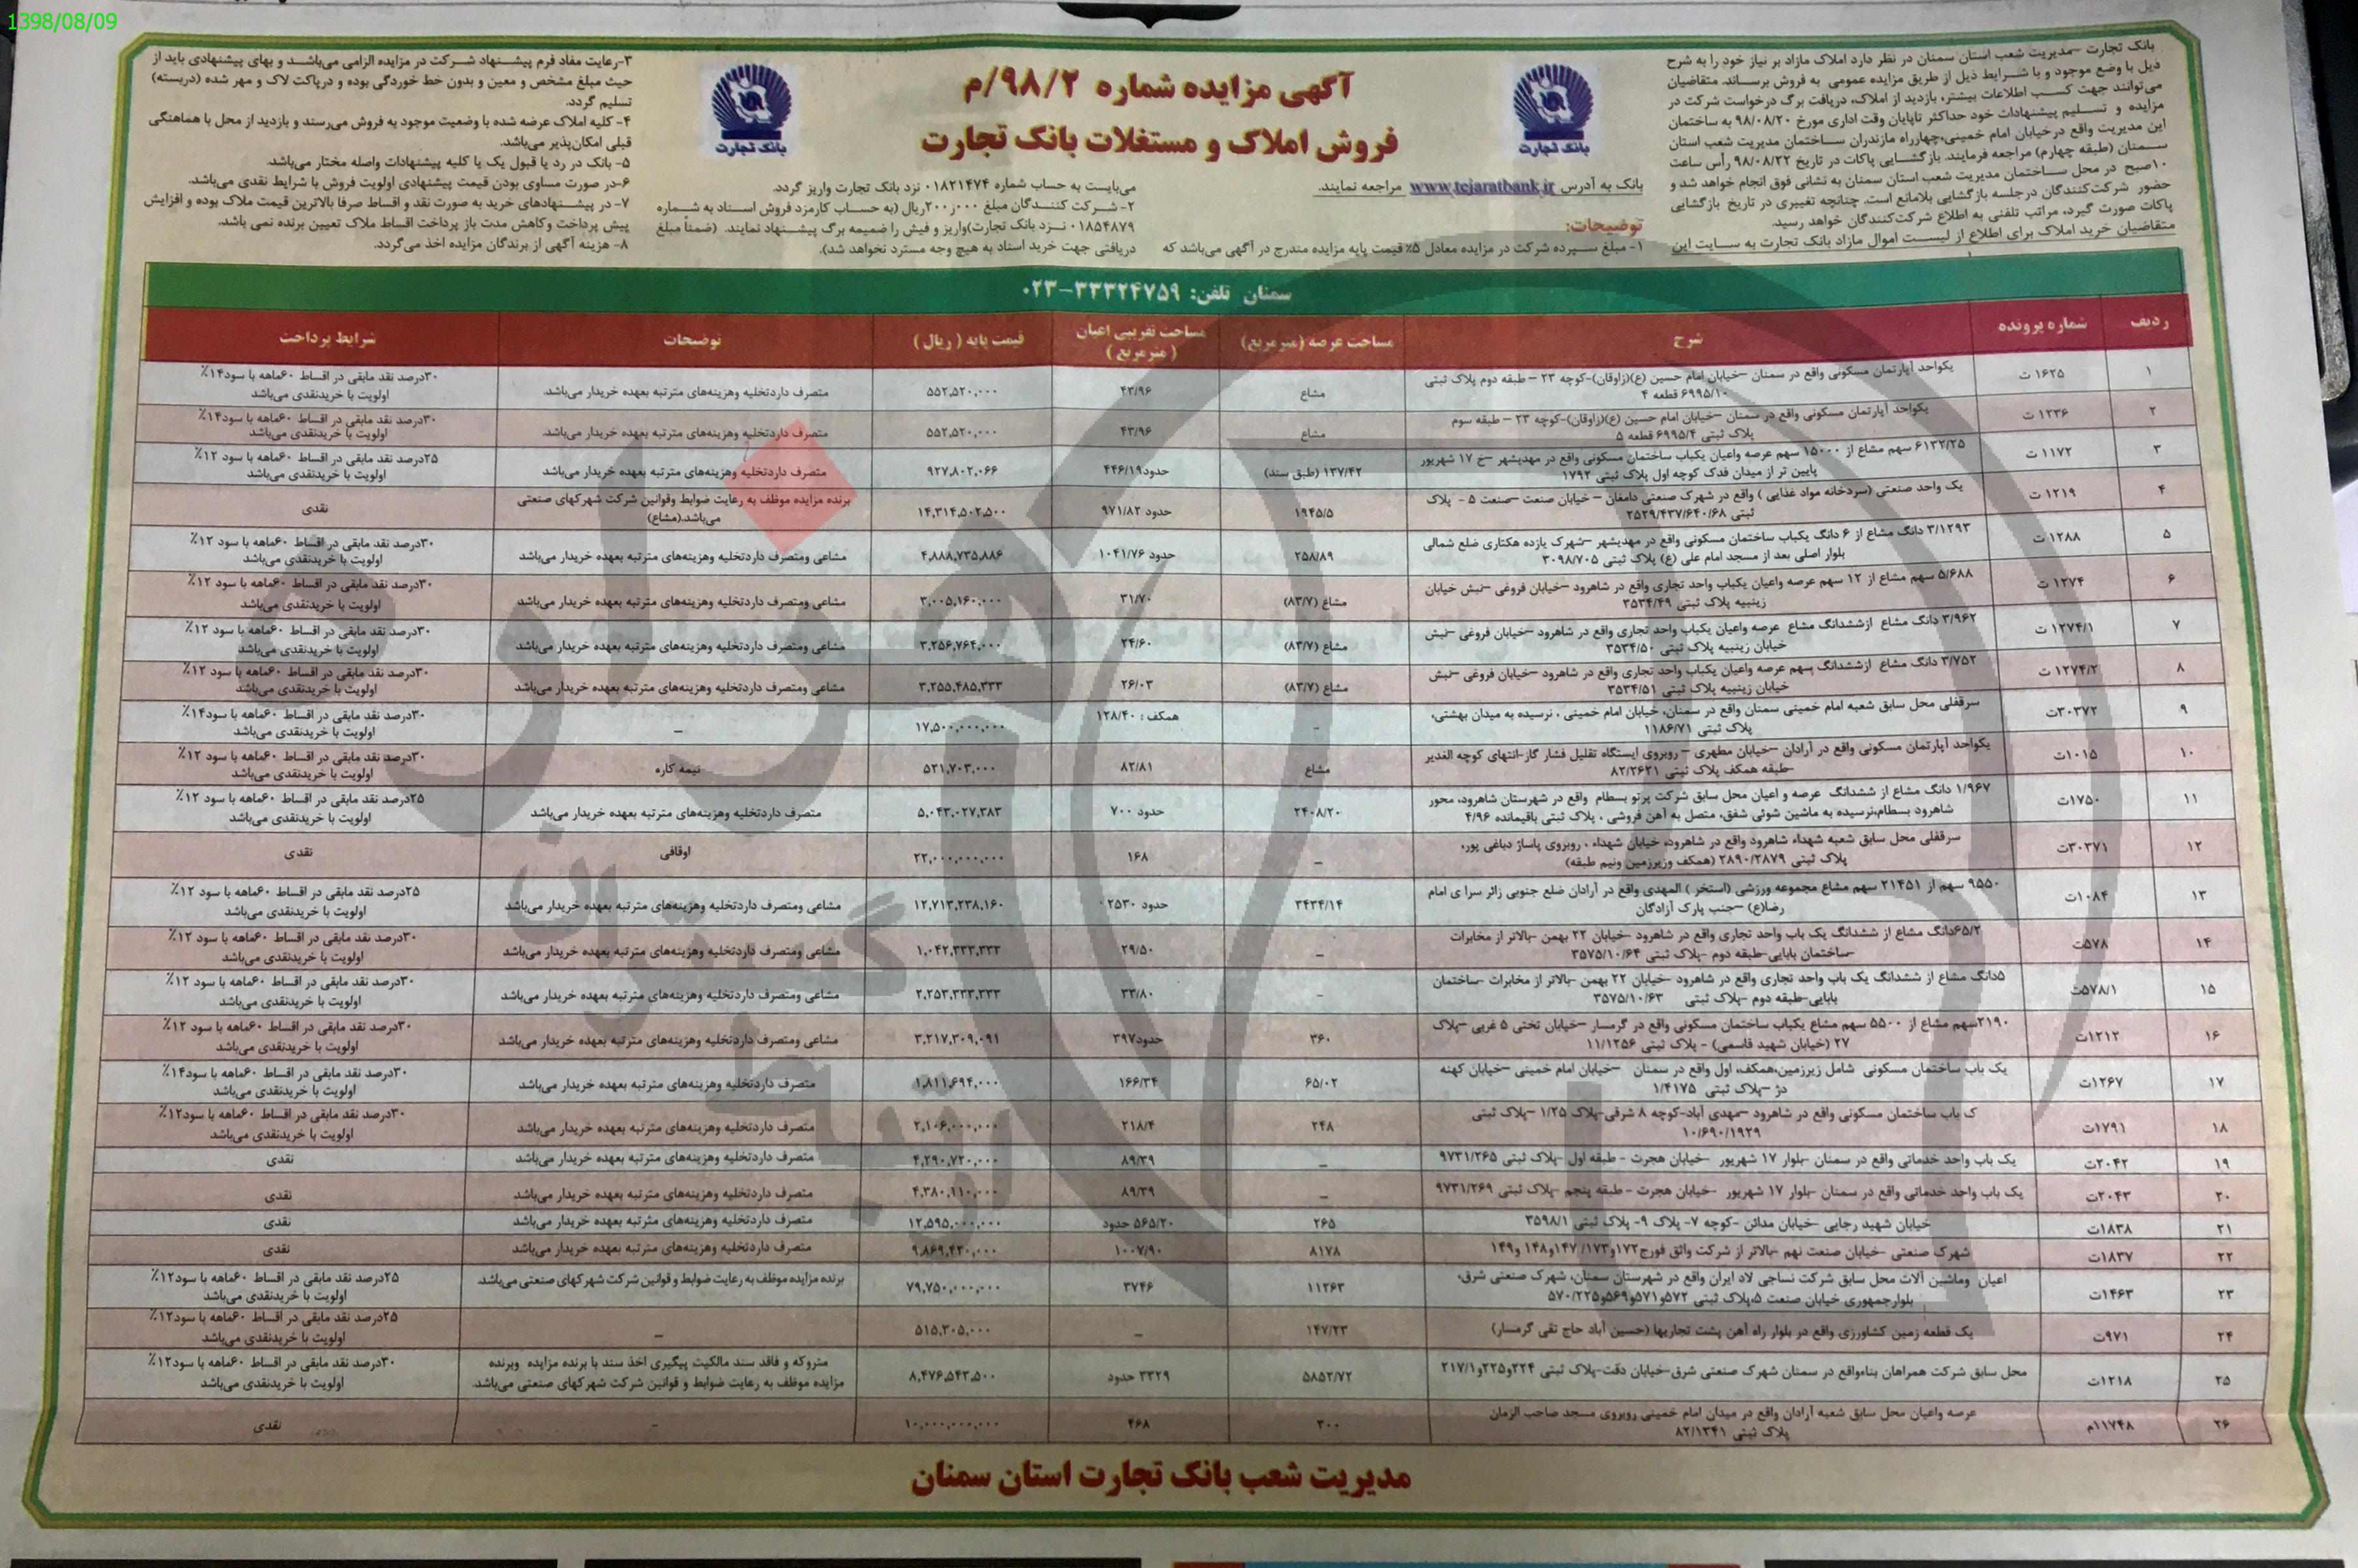 1398/08/09
آگهی مزایده شماره ۹۸/۲/م
فروش املاک و مستغلات بانک تجارت
بانک تجارت
بانک تجارت
بانک تجارت –مدیریت شعب استان سمنان در نظر دارد املاک مازاد بر نیاز خود را به شرح
ذیل با وضع موجود و با شرایط ذیل از طریق مزایده عمومی به فروش برساند. متقاضیان
می‌توانند جهت کسب اطلاعات بیشتر، بازدید از املاک، دریافت برگ درخواست شرکت در
مزایده و تسلیم پیشنهادات خود حداکثر تاپایان وقت اداری مورخ ۹۸/۰۸/۲۰ به ساختمان
این مدیریت واقع درخیابان امام خمینی،چهارراه مازندران ساختمان مدیریت شعب استان
سمنان (طبقه چهارم) مراجعه فرمایند. بازگشایی پاکات در تاریخ ۹۸/۰۸/۲۲ رأس ساعت
۱۰صبح در محل ساختمان مدیریت شعب استان سمنان به نشانی فوق انجام خواهد شد و
حضور شرکت‌کنندگان درجلسه بازگشایی بلامانع است. چنانچه تغییری در تاریخ بازگشایی
پاکات صورت گیرد، مراتب تلفنی به اطلاع شرکت‌کنندگان خواهد رسید.
متقاضیان خرید املاک برای اطلاع از لیست اموال مازاد بانک تجارت به سایت این
بانک به آدرس www.tejaratbank.ir مراجعه نمایند.
توضیحات:
۱- مبلغ سپرده شرکت در مزایده معادل ۵٪ قیمت پایه مزایده مندرج در آگهی می‌باشد که
می‌بایست به حساب شماره ۰۱۸۲۱۴۷۴ نزد بانک تجارت واریز گردد.
۲- شرکت کنندگان مبلغ ۲۰۰٫۰۰۰ریال (به حساب کارمزد فروش اسناد به شماره
۰۱۸۵۴۸۷۹ نزد بانک تجارت)واریز و فیش را ضمیمه برگ پیشنهاد نمایند. (ضمناً مبلغ
دریافتی جهت خرید اسناد به هیچ وجه مسترد نخواهد شد).
۳-رعایت مفاد فرم پیشنهاد شرکت در مزایده الزامی می‌باشد و بهای پیشنهادی باید از
حیث مبلغ مشخص و معین و بدون خط خوردگی بوده و درپاکت لاک و مهر شده (دربسته)
تسلیم گردد.
۴- کلیه املاک عرضه شده با وضعیت موجود به فروش می‌رسند و بازدید از محل با هماهنگی
قبلی امکان‌پذیر می‌باشد.
۵- بانک در رد یا قبول یک یا کلیه پیشنهادات واصله مختار می‌باشد.
۶-در صورت مساوی بودن قیمت پیشنهادی اولویت فروش با شرایط نقدی می‌باشد.
۷- در پیشنهادهای خرید به صورت نقد و اقساط صرفا بالاترین قیمت ملاک بوده و افزایش
پیش پرداخت وکاهش مدت باز پرداخت اقساط ملاک تعیین برنده نمی باشد.
۸- هزینه آگهی از برندگان مزایده اخذ می‌گردد.
سمنان تلفن: ۳۳۳۲۴۷۵۹-۰۲۳
ردیف شماره پرونده شرح مساحت عرصه (مترمربع) مساحت تقریبی اعیان (مترمربع) قیمت پایه (ریال) توضیحات شرایط پرداخت
۱ ۱۶۲۵ ت یکواحد آپارتمان مسکونی واقع در سمنان –خیابان امام حسین (ع)(زاوقان)-کوچه ۲۳ – طبقه دوم پلاک ثبتی
۶۹۹۵/۱۰ قطعه ۴ مشاع ۴۳/۹۶ ۵۵۲,۵۲۰,۰۰۰ متصرف داردتخلیه وهزینه‌های مترتبه بعهده خریدار می‌باشد. ۳۰درصد نقد مابقی در اقساط ۶۰ماهه با سود۱۴٪
اولویت با خریدنقدی می‌باشد
۲ ۱۲۳۶ ت یکواحد آپارتمان مسکونی واقع در سمنان –خیابان امام حسین (ع)(زاوقان)-کوچه ۲۳ – طبقه سوم
پلاک ثبتی ۶۹۹۵/۴ قطعه ۵ مشاع ۴۳/۹۶ ۵۵۲,۵۲۰,۰۰۰ متصرف داردتخلیه وهزینه‌های مترتبه بعهده خریدار می‌باشد. ۳۰درصد نقد مابقی در اقساط ۶۰ماهه با سود۱۴٪
اولویت با خریدنقدی می‌باشد
۳ ۱۱۷۲ ت ۶۱۳۲/۲۵ سهم مشاع از ۱۵۰۰۰ سهم عرصه واعیان یکباب ساختمان مسکونی واقع در مهدیشهر –خ ۱۷ شهریور
پایین تر از میدان فدک کوچه اول پلاک ثبتی ۱۷۹۲ ۱۳۷/۴۲ (طبق سند) حدود۴۴۶/۱۹ ۹۲۷,۸۰۲,۰۶۶ متصرف داردتخلیه وهزینه‌های مترتبه بعهده خریدار می‌باشد ۲۵درصد نقد مابقی در اقساط ۶۰ماهه با سود ۱۲٪
اولویت با خریدنقدی می‌باشد
۴ ۱۲۱۹ ت یک واحد صنعتی (سردخانه مواد غذایی ) واقع در شهرک صنعتی دامغان – خیابان صنعت –صنعت ۵ - پلاک
ثبتی ۲۵۲۹/۴۳۷/۶۴۰/۶۸ ۱۹۴۵/۵ حدود ۹۷۱/۸۲ ۱۴,۳۱۴,۵۰۲,۵۰۰ برنده مزایده موظف به رعایت ضوابط وقوانین شرکت شهرکهای صنعتی
می‌باشد.(مشاع) نقدی
۵ ۱۲۸۸ ت ۳/۱۲۹۳ دانگ مشاع از ۶ دانگ یکباب ساختمان مسکونی واقع در مهدیشهر –شهرک یازده هکتاری ضلع شمالی
بلوار اصلی بعد از مسجد امام علی (ع) پلاک ثبتی ۳۰۹۸/۷۰۵ ۲۵۸/۸۹ حدود ۱۰۴۱/۷۶ ۴,۸۸۸,۷۳۵,۸۸۶ مشاعی ومتصرف داردتخلیه وهزینه‌های مترتبه بعهده خریدار می‌باشد ۳۰درصد نقد مابقی در اقساط ۶۰ماهه با سود ۱۲٪
اولویت با خریدنقدی می‌باشد
۶ ۱۲۷۴ ت ۵/۶۸۸ سهم مشاع از ۱۲ سهم عرصه واعیان یکباب واحد تجاری واقع در شاهرود –خیابان فروغی –نبش خیابان
زینبیه پلاک ثبتی ۳۵۳۴/۴۹ مشاع (۸۳/۷) ۳۱/۷۰ ۳,۰۰۵,۱۶۰,۰۰۰ مشاعی ومتصرف داردتخلیه وهزینه‌های مترتبه بعهده خریدار می‌باشد ۳۰درصد نقد مابقی در اقساط ۶۰ماهه با سود ۱۲٪
اولویت با خریدنقدی می‌باشد
۷ ۱۲۷۴/۱ ت ۳/۹۶۲ دانگ مشاع ازششدانگ مشاع عرصه واعیان یکباب واحد تجاری واقع در شاهرود –خیابان فروغی –نبش
خیابان زینبیه پلاک ثبتی ۳۵۳۴/۵۰ مشاع (۸۳/۷) ۲۴/۶۰ ۳,۲۵۶,۷۶۴,۰۰۰ مشاعی ومتصرف داردتخلیه وهزینه‌های مترتبه بعهده خریدار می‌باشد ۳۰درصد نقد مابقی در اقساط ۶۰ماهه با سود ۱۲٪
اولویت با خریدنقدی می‌باشد
۸ ۱۲۷۴/۲ ت ۳/۷۵۲ دانگ مشاع ازششدانگ سهم عرصه واعیان یکباب واحد تجاری واقع در شاهرود –خیابان فروغی –نبش
خیابان زینبیه پلاک ثبتی ۳۵۳۴/۵۱ مشاع (۸۳/۷) ۲۶/۰۳ ۳,۲۵۵,۴۸۵,۳۳۳ مشاعی ومتصرف داردتخلیه وهزینه‌های مترتبه بعهده خریدار می‌باشد ۳۰درصد نقد مابقی در اقساط ۶۰ماهه با سود ۱۲٪
اولویت با خریدنقدی می‌باشد
۹ ۳۰۳۷۲ت سرقفلی محل سابق شعبه امام خمینی سمنان واقع در سمنان، خیابان امام خمینی ، نرسیده به میدان بهشتی،
پلاک ثبتی ۱۱۸۶/۷۱ – همکف : ۱۲۸/۴۰ ۱۷,۵۰۰,۰۰۰,۰۰۰ – ۳۰درصد نقد مابقی در اقساط ۶۰ماهه با سود۱۴٪
اولویت با خریدنقدی می‌باشد
۱۰ ۱۰۱۵ت یکواحد آپارتمان مسکونی واقع در آرادان –خیابان مطهری – روبروی ایستگاه تقلیل فشار گاز-انتهای کوچه الغدیر
-طبقه همکف پلاک ثبتی ۸۲/۲۶۲۱ مشاع ۸۲/۸۱ ۵۲۱,۷۰۳,۰۰۰ نیمه کاره ۳۰درصد نقد مابقی در اقساط ۶۰ماهه با سود ۱۲٪
اولویت با خریدنقدی می‌باشد
۱۱ ۱۷۵۰ت ۱/۹۶۷ دانگ مشاع از ششدانگ عرصه و اعیان محل سابق شرکت پرتو بسطام واقع در شهرستان شاهرود، محور
شاهرود بسطام،نرسیده به ماشین شوئی شفق، متصل به آهن فروشی ، پلاک ثبتی باقیمانده ۴/۹۶ ۲۴۰۸/۲۰ حدود ۷۰۰ ۵,۰۴۳,۰۲۷,۳۸۳ متصرف داردتخلیه وهزینه‌های مترتبه بعهده خریدار می‌باشد ۲۵درصد نقد مابقی در اقساط ۶۰ماهه با سود ۱۲٪
اولویت با خریدنقدی می‌باشد
۱۲ ۳۰۳۷۱ت سرقفلی محل سابق شعبه شهداء شاهرود واقع در شاهرود، خیابان شهداء ، روبروی پاساژ دباغی پور،
پلاک ثبتی ۲۸۹۰/۲۸۷۹ (همکف وزیرزمین ونیم طبقه) – ۱۶۸ ۲۲,۰۰۰,۰۰۰,۰۰۰ اوقافی نقدی
۱۳ ۱۰۸۴ت ۹۵۵۰ سهم از ۲۱۴۵۱ سهم مشاع مجموعه ورزشی (استخر ) المهدی واقع در آرادان ضلع جنوبی زائر سرا ی امام
رضا(ع) –جنب پارک آزادگان ۳۴۳۴/۱۴ حدود ۲۵۳۰ ۱۲,۷۱۳,۲۳۸,۱۶۰ مشاعی ومتصرف داردتخلیه وهزینه‌های مترتبه بعهده خریدار می‌باشد ۲۵درصد نقد مابقی در اقساط ۶۰ماهه با سود ۱۲٪
اولویت با خریدنقدی می‌باشد
۱۴ ۵۷۸ت دانگ مشاع از ششدانگ یک باب واحد تجاری واقع در شاهرود –خیابان ۲۲ بهمن –بالاتر از مخابرات
-ساختمان بابایی-طبقه دوم –پلاک ثبتی ۳۵۷۵/۱۰/۶۴ – ۲۹/۵۰ ۱,۰۴۲,۳۳۳,۳۳۳ مشاعی ومتصرف داردتخلیه وهزینه‌های مترتبه بعهده خریدار می‌باشد ۳۰درصد نقد مابقی در اقساط ۶۰ماهه با سود ۱۲٪
اولویت با خریدنقدی می‌باشد
۱۵ ۵۷۸/۱ت ۵دانگ مشاع از ششدانگ یک باب واحد تجاری واقع در شاهرود –خیابان ۲۲ بهمن –بالاتر از مخابرات –ساختمان
بابایی-طبقه دوم –پلاک ثبتی ۳۵۷۵/۱۰/۶۳ – ۳۳/۸۰ ۲,۲۵۳,۳۳۳,۳۳۳ مشاعی ومتصرف داردتخلیه وهزینه‌های مترتبه بعهده خریدار می‌باشد ۳۰درصد نقد مابقی در اقساط ۶۰ماهه با سود ۱۲٪
اولویت با خریدنقدی می‌باشد
۱۶ ۱۲۱۲ت ۲۱۹۰سهم مشاع از ۵۵۰۰ سهم مشاع یکباب ساختمان مسکونی واقع در گرمسار –خیابان تختی ۵ غربی –پلاک
۲۷ (خیابان شهید قاسمی) - پلاک ثبتی ۱۱/۱۲۵۶ ۳۶۰ حدود۳۹۷ ۳,۲۱۷,۳۰۹,۰۹۱ مشاعی ومتصرف داردتخلیه وهزینه‌های مترتبه بعهده خریدار می‌باشد ۳۰درصد نقد مابقی در اقساط ۶۰ماهه با سود ۱۲٪
اولویت با خریدنقدی می‌باشد
۱۷ ۱۲۶۷ت یک باب ساختمان مسکونی شامل زیرزمین،همکف، اول واقع در سمنان –خیابان امام خمینی –خیابان کهنه
دژ –پلاک ثبتی ۱/۴۱۷۵ ۶۵/۰۲ ۱۶۶/۳۴ ۱,۸۱۱,۶۹۴,۰۰۰ متصرف داردتخلیه وهزینه‌های مترتبه بعهده خریدار می‌باشد ۳۰درصد نقد مابقی در اقساط ۶۰ماهه با سود۱۴٪
اولویت با خریدنقدی می‌باشد
۱۸ ۱۷۹۱ت ک باب ساختمان مسکونی واقع در شاهرود –مهدی آباد-کوچه ۸ شرقی-پلاک ۱/۲۵ –پلاک ثبتی
۱۰/۶۹۰/۱۹۲۹ ۲۴۸ ۲۱۸/۴ ۲,۱۰۶,۰۰۰,۰۰۰ متصرف داردتخلیه وهزینه‌های مترتبه بعهده خریدار می‌باشد ۳۰درصد نقد مابقی در اقساط ۶۰ماهه با سود۱۲٪
اولویت با خریدنقدی می‌باشد
۱۹ ۲۰۴۲ت یک باب واحد خدماتی واقع در سمنان –بلوار ۱۷ شهریور –خیابان هجرت - طبقه اول –پلاک ثبتی ۹۷۳۱/۲۶۵ – ۸۹/۳۹ ۴,۲۹۰,۷۲۰,۰۰۰ متصرف داردتخلیه وهزینه‌های مترتبه بعهده خریدار می‌باشد نقدی
۲۰ ۲۰۴۳ت یک باب واحد خدماتی واقع در سمنان –بلوار ۱۷ شهریور –خیابان هجرت - طبقه پنجم –پلاک ثبتی ۹۷۳۱/۲۶۹ – ۸۹/۳۹ ۴,۳۸۰,۱۱۰,۰۰۰ متصرف داردتخلیه وهزینه‌های مترتبه بعهده خریدار می‌باشد نقدی
۲۱ ۱۸۳۸ت خیابان شهید رجایی –خیابان مدائن –کوچه ۷- پلاک ۹- پلاک ثبتی ۳۵۹۸/۱ ۲۶۵ ۵۶۵/۲۰ حدود ۱۲,۵۹۵,۰۰۰,۰۰۰ متصرف داردتخلیه وهزینه‌های مترتبه بعهده خریدار می‌باشد نقدی
۲۲ ۱۸۳۷ت شهرک صنعتی –خیابان صنعت نهم –بالاتر از شرکت واثق فورج۱۷۲و۱۷۳/ ۱۴۷و۱۴۸ و۱۴۹ ۸۱۷۸ ۱۰۰۷/۹۰ ۹,۸۶۹,۴۲۰,۰۰۰ متصرف داردتخلیه وهزینه‌های مترتبه بعهده خریدار می‌باشد نقدی
۲۳ ۱۴۶۳ت اعیان وماشین آلات محل سابق شرکت نساجی لاد ایران واقع در شهرستان سمنان، شهرک صنعتی شرق،
بلوارجمهوری خیابان صنعت ۵،پلاک ثبتی ۵۷۲و۵۷۱و۵۶۹و۵۷۰/۲۲۵ ۱۱۲۶۳ ۳۷۴۶ ۷۹,۷۵۰,۰۰۰,۰۰۰ برنده مزایده موظف به رعایت ضوابط و قوانین شرکت شهرکهای صنعتی می‌باشد. ۲۵درصد نقد مابقی در اقساط ۶۰ماهه با سود۱۲٪
اولویت با خریدنقدی می‌باشد
۲۴ ۹۷۱ت یک قطعه زمین کشاورزی واقع در بلوار راه آهن پشت تجاریها (حسین آباد حاج تقی گرمسار) ۱۴۷/۲۳ – ۵۱۵,۳۰۵,۰۰۰ – ۲۵درصد نقد مابقی در اقساط ۶۰ماهه با سود۱۲٪
اولویت با خریدنقدی می‌باشد
۲۵ ۱۲۱۸ت محل سابق شرکت همراهان بناءواقع در سمنان شهرک صنعتی شرق-خیابان دقت-پلاک ثبتی ۲۲۴و۲۲۵و۲۱۷/۱ ۵۸۵۲/۷۲ ۳۳۲۹ حدود ۸,۴۷۶,۵۴۳,۵۰۰ متروکه و فاقد سند مالکیت پیگیری اخذ سند با برنده مزایده وبرنده
مزایده موظف به رعایت ضوابط و قوانین شرکت شهرکهای صنعتی می‌باشد. ۳۰درصد نقد مابقی در اقساط ۶۰ماهه با سود۱۲٪
اولویت با خریدنقدی می‌باشد
۲۶ ۱۱۷۴۸م عرصه واعیان محل سابق شعبه آرادان واقع در میدان امام خمینی روبروی مسجد صاحب الزمان
پلاک ثبتی ۸۲/۱۳۴۱ ۳۰۰ ۴۶۸ ۱۰,۰۰۰,۰۰۰,۰۰۰ – نقدی
مدیریت شعب بانک تجارت استان سمنان